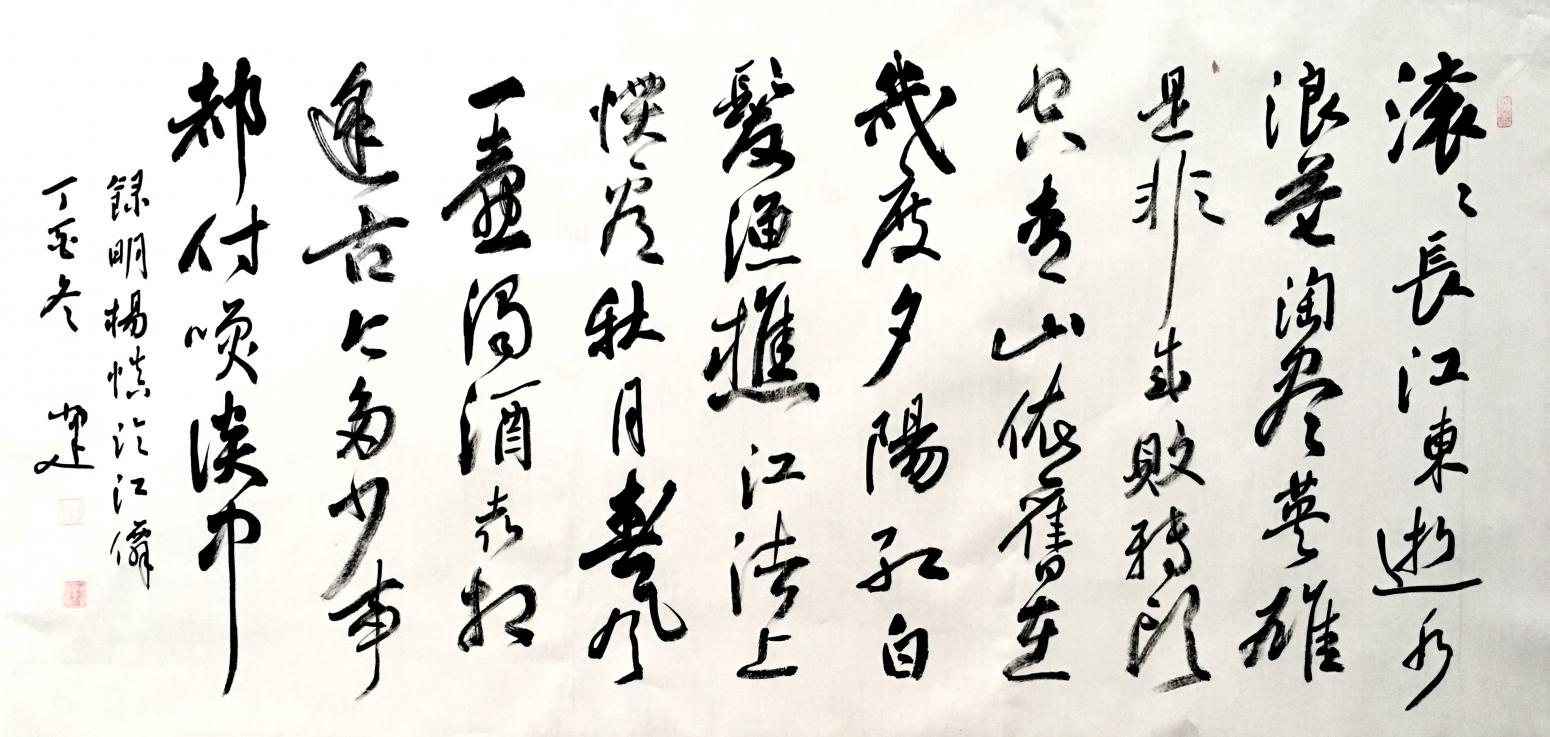 滾〻長江東逝水
浪花淘尽英雄
是非成敗轉頭
空青山依舊在
幾度夕陽紅白
髮漁樵江渚上
慣看秋月春風
一壺濁酒喜相
逢古今多少事
都付咲談中
錄明楊慎臨江僊
丁酉冬 建